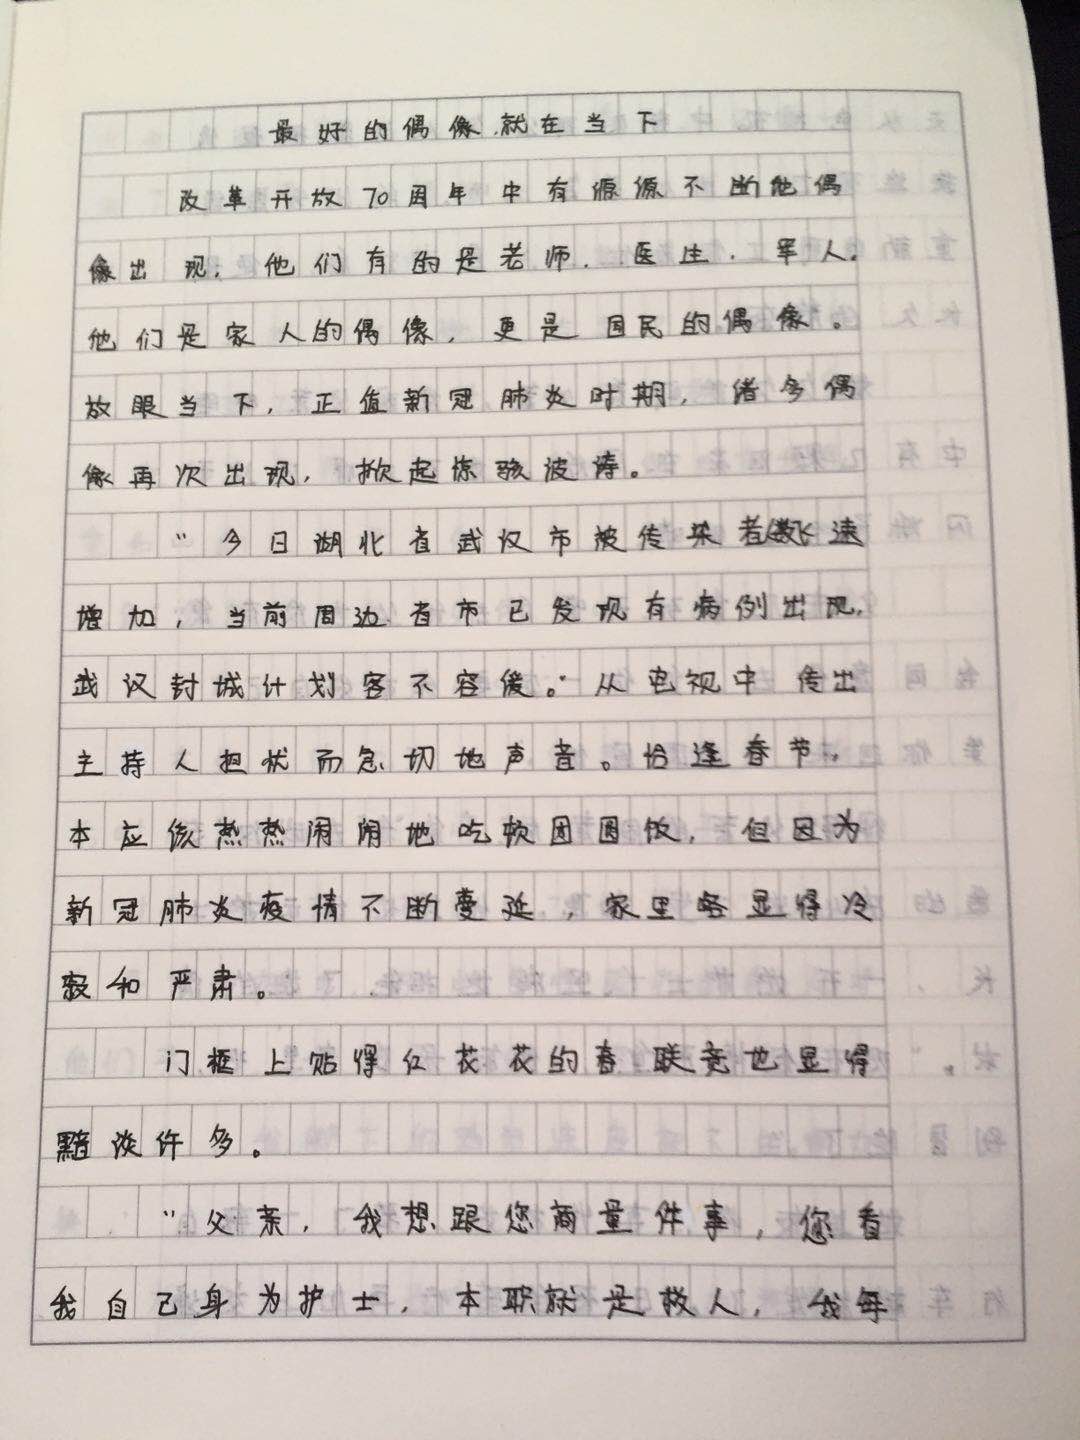 最好的偶像,就在当下
改革开放70周年中有源源不断他偶
像出现,他们有的是老师、医生、军人,
他们是家人的偶像,更是国民的偶像。
放眼当下,正值新冠肺炎时期,诸多偶
像再次出现,掀起惊骇波涛。
"今日湖北省武汉市被传染者数飞速
增加,当前周边省市已发现有病例出现,
武汉封城计划客不容缓。"从电视中传出
主持人担忧而急切地声音。恰逢春节,
本应该热热闹闹地吃顿团圆饭,但因为
新冠肺炎疫情不断蔓延,家里略显得冷
寂和严肃。
门框上贴得红花花的春联竟也显得
黯淡许多。
"父亲,我想跟您商量件事,您看
我自己身为护士,本职就是救人,我每